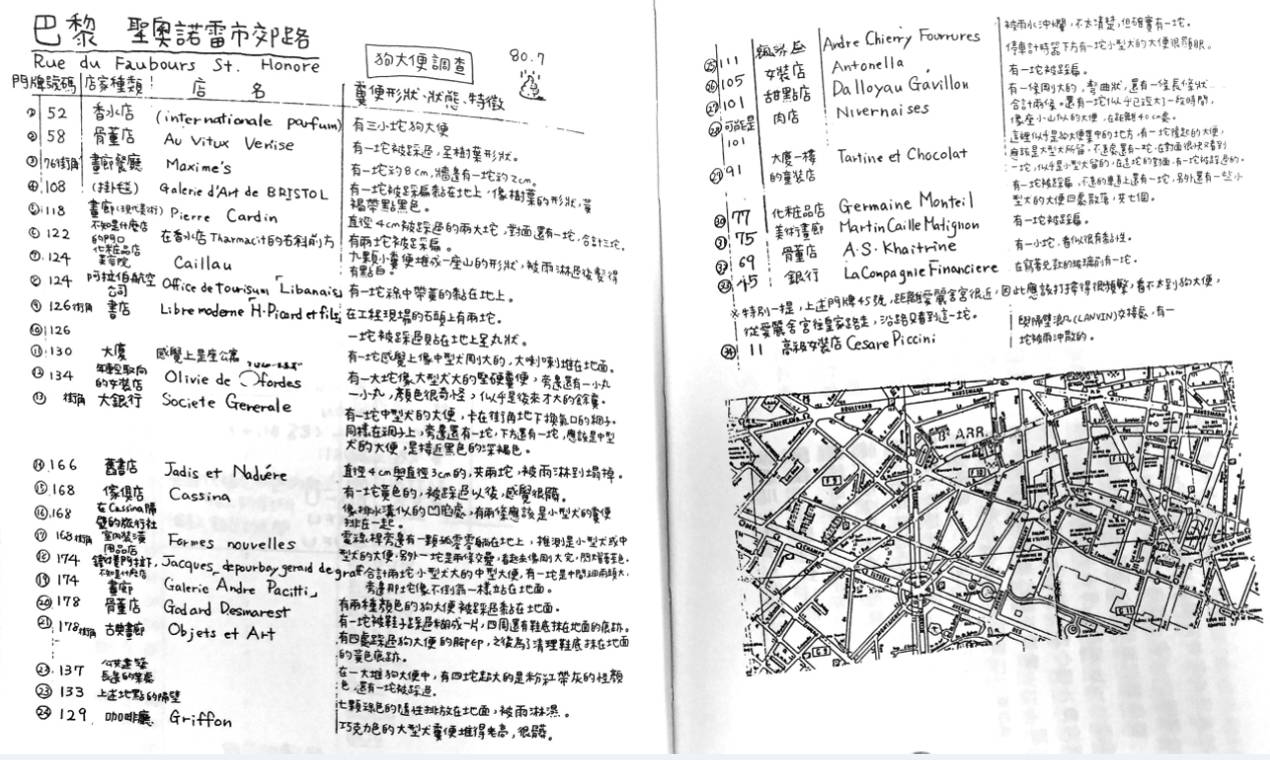 巴黎 聖奧諾雷市郊路
Rue du Faubours St. Honore
狗大便調查
80.7
門牌號碼 店家種類 店名 糞便形狀、狀態、特徵
① 52 香水店 (internationale parfum) 有三小坨狗大便
② 58 骨董店 Au Vitux Venise 有一坨被踩過,呈樹葉形狀。
③ 76街角 畫廊餐廳 Maxime's 有一坨約8cm,牆邊有一坨約2cm。
④ 108 (掛毯) Galerie d'Art de BRISTOL 有一坨被踩扁黏在地上,像樹葉的形狀,黃
褐帶點黑色。
⑤ 118 畫廊(現代美術) Pierre Cardin 直徑4cm被踩過的兩大坨,對面還有一坨,合計三坨。
⑥ 122 不知是什麼店的門口 在香水店Tharmacit的右斜前方 有兩坨被踩扁。
⑦ 124 化粧品店 美容院 Caillau 九顆小糞便堆成一座山的形狀,被雨淋過後變得
有點白。
⑧ 124 阿拉伯航空公司 Office de Tourisum「Libanais」 有一坨綠中帶黃的黏在地上。
⑨ 126街角 書店 Libre moderne H·Picard et fils 在工程現場的石頭上有兩坨。
⑩ 126 一坨被踩過貼在地上呈丸狀。
⑪ 130 大廈 感覺上是座公寓 有一坨感覺上像中型犬剛大的,大喇喇堆在地面。
⑫ 134 年輕取向的女裝店 Olivie de 有一大坨像大型犬大的堅硬糞便,旁邊還有一小丸
一小丸,顏色很奇怪,似乎是後來才大的餘糞。
⑬ 街角 大銀行 Societe Generale 有一坨中型犬的大便,卡在街角地下換氣口的網子。
同樣在網子上,旁邊還有一坨,下方還有一坨,應該是中型
犬的大便,是接近黑色的深褐色。
⑭ 166 舊書店 Jadis et Naduére 直徑4cm與直徑3cm的,共兩坨,被雨淋到塌掉。
⑮ 168 傢俱店 Cassina 有一坨黃色的,被踩過以後,感覺很髒。
⑯ 168 在Cassina隔壁的旅行社 像排水溝似的凹陷處,有兩條應該是小型犬的糞便
排在一起。
⑰ 168街角 室內裝潢用品店 Formes nouvelles 電線桿旁邊有一顆孤零零躺在地上,推測是小型犬或中
型犬的大便。另外一坨是兩條疊,看起來像剛大完,閃耀著色。
⑱ 174 Jacques depourbay gerald de graf 合計兩坨小型犬大的中型大便,有一坨是中間細兩頭大,
旁邊那坨像不倒翁一樣站在地面。
⑲ 174 不知是什麼店 畫廊 Galerie Andre Pacitti
⑳ 178 骨董店 Godard Desmarest 有兩種顏色的狗大便被踩過黏在地面。
㉑ 178街角 古典畫廊 Objets et Art 有一坨被鞋子踩過糊成一片,四周還有鞋底抹在地面的痕跡。
有四處踩過狗大便的腳印,之後為了清理鞋底抹在地面
的黃色痕跡。
㉒ 137 在一大堆狗大便中,有四坨超大的是粉紅帶灰的怪顏
色,還有一坨被踩過。
㉓ 133 上述地點的隔壁 七顆綠色的隨性排放在地面,被雨淋濕。
㉔ 129 咖啡廳 Griffon 巧克力色的大型犬糞便堆得老高,很髒。
被雨水沖爛,不太清楚,但確實有一坨。
㉕ 111 Andre Chierry Fourrures 停車計時器下方有一坨小型犬的大便很顯眼。
㉖ 105 女裝店 Antonella 有一坨被踩扁。
㉗ 101 甜點店 Dalloyau Gavillon 有一條剛大的,彎曲狀,還有一條長條狀
合計兩條。還有一坨似乎已經大了一段時間,
㉘ 可能是101 肉店 Nivernaises 像座小山似的大便,在距離40cm處。
這裡似乎是狗大便集中的地方,有一坨隆起的大便,
應該是大型犬所留,不遠處還有一坨,在對面很快又看到
一坨,似乎是小型犬留的,在這坨的對面,有一坨被踩過的。
㉙ 91 大廈一樓的童裝店 Tartine et Chocolat 有一坨被踩扁,不遠的車道上還有一坨,另外還有一些小
型犬的大便四處散落,共七個。
㉚ 77 化粧品店 Germaine Monteil 有一坨被踩扁。
㉛ 75 美術畫廊 Martin Caille Matignon 有一小坨,看似很有黏性。
㉜ 69 骨董店 A.S.Khaitrine
㉝ 45 銀行 La Compagnie Financiere
※特別一提,上述門牌45號,距離愛麗舍宮很近,因此應該打掃得很頻繁,看不太到狗大便,
從愛麗舍宮往皇家路走,沿路只看到這一坨。
㉞ 11 高級女裝店 Cesare Piccini 與隔壁浪凡(LANVIN)交接處,有一
坨被雨沖散的。